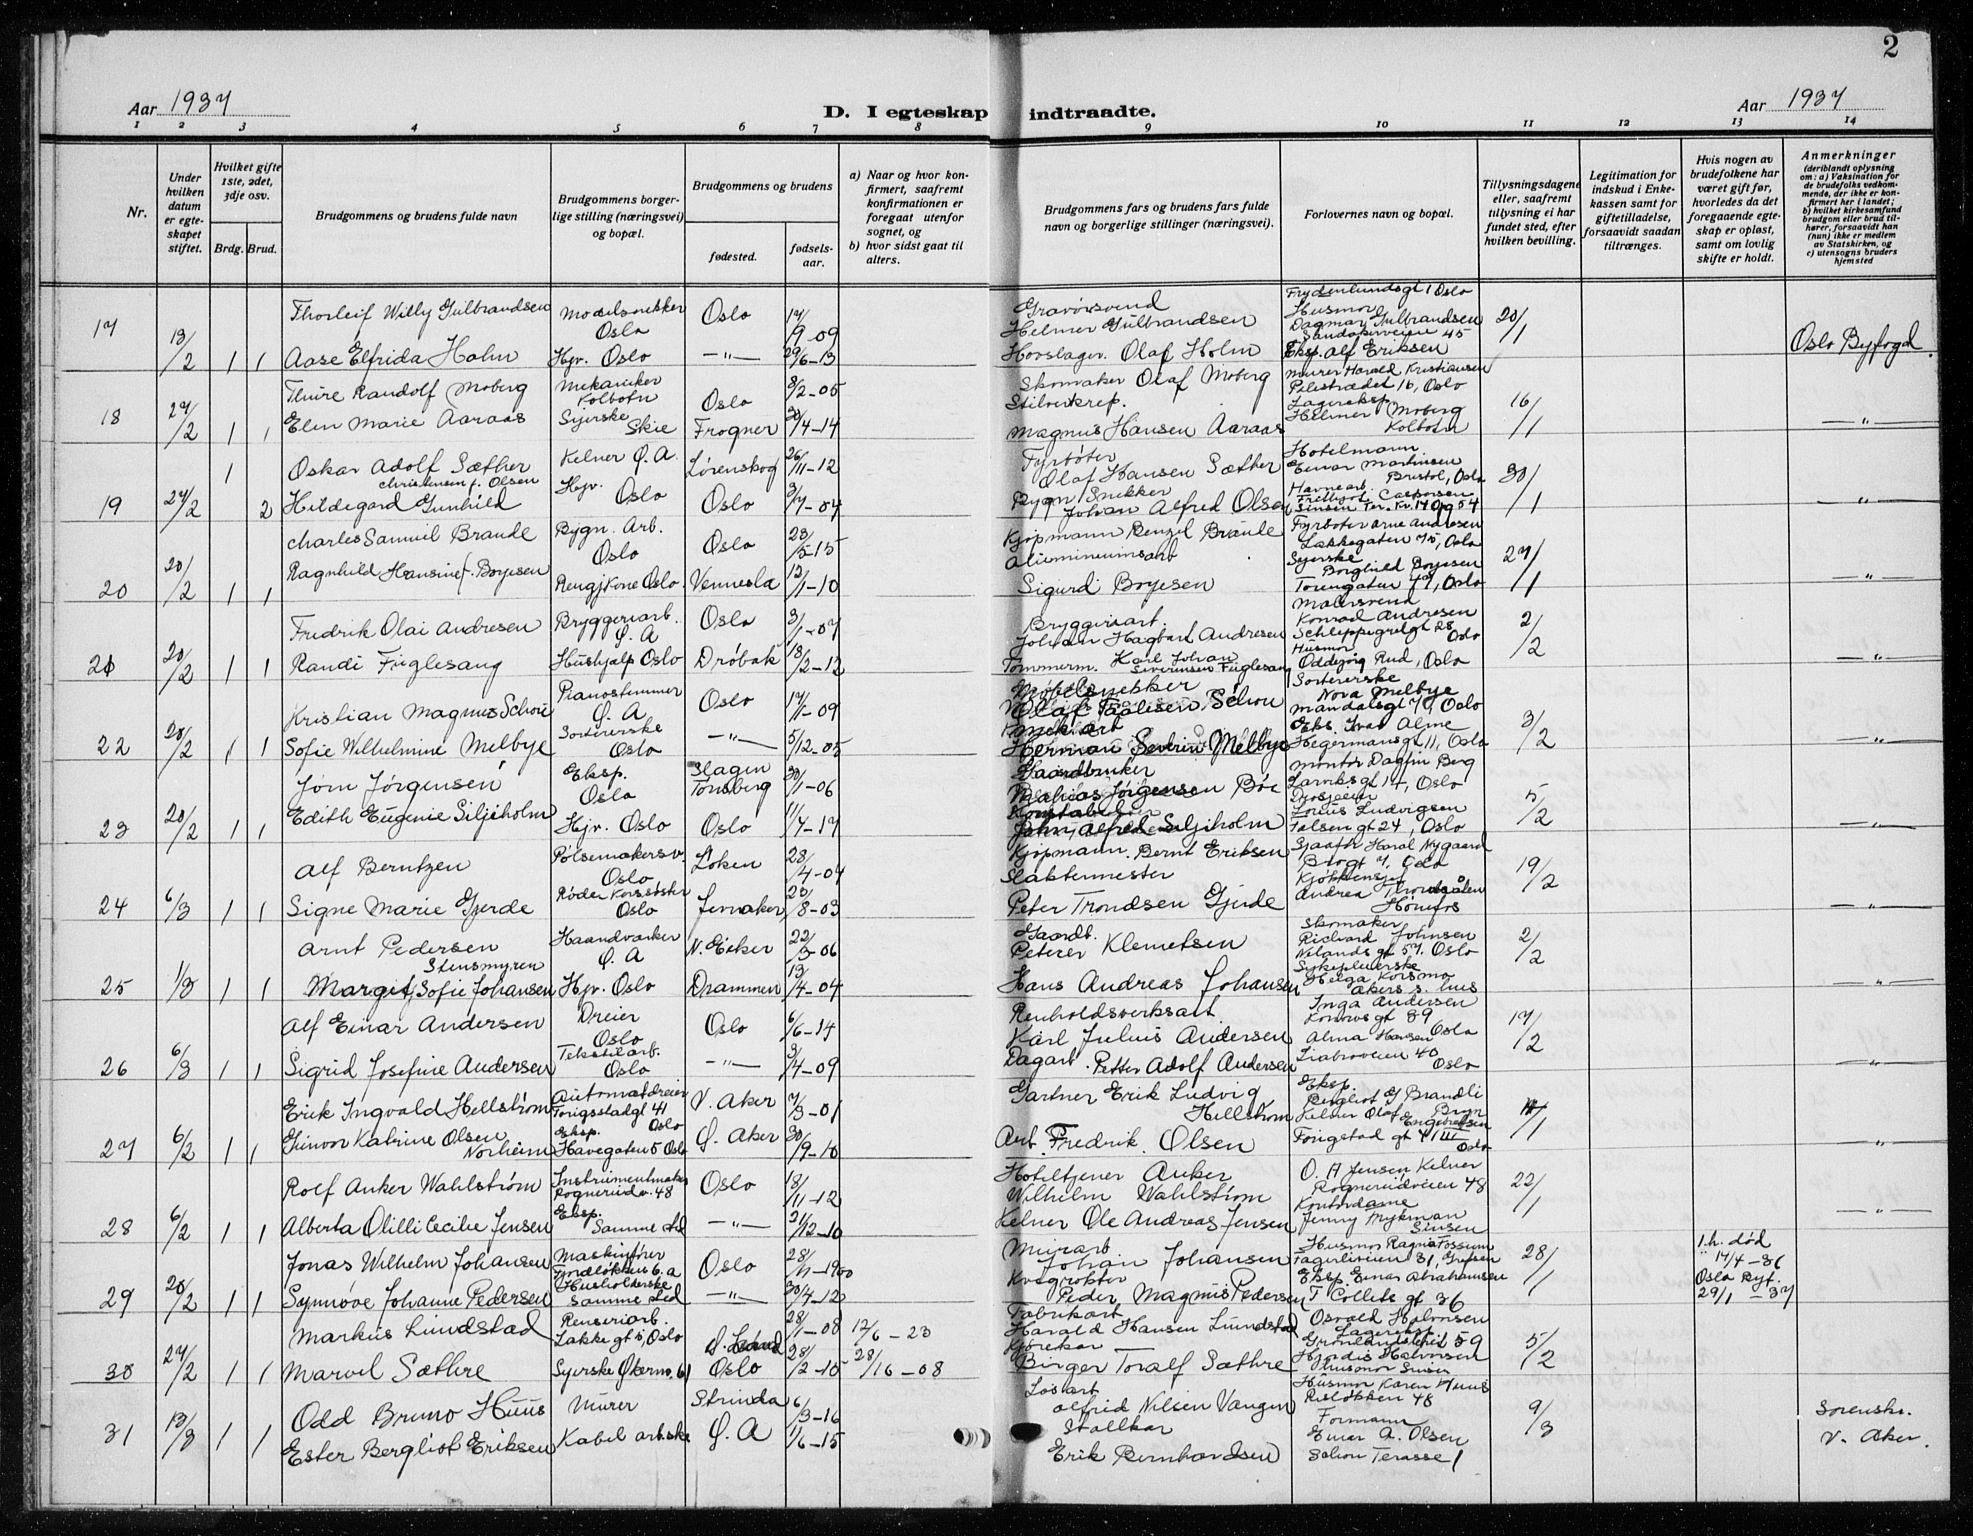 2
Aar 1937
D. I egteskap indtraadte.
Aar 1937
1 2 3 4 5 6 7 8 9 10 11 12 13 14
Nr.
Under hvilken datum er egteskapet stiftet.
Hvilket gifte 1ste, 2det, 3dje osv.
Brdg. Brud.
Brudgommens og brudens fulde navn
Brudgommens borgerlige stilling (næringsvei) og bopæl.
Brudgommens og brudens
fødested.
fødselsaar.
a) Naar og hvor konfirmert, saafremt konfirmationen er foregaat utenfor sognet, og
b) hvor sidst gaat til alters.
Brudgommens fars og brudens fars fulde navn og borgerlige stillinger (næringsvei).
Forlovernes navn og bopæl.
Tillysningsdagene eller, saafremt tillysning ei har fundet sted, efter hvilken bevilling.
Legitimation for indskud i Enkekassen samt for giftetilladelse, forsaavidt saadan tiltrænges.
Hvis nogen av brudefolkene har været gift før, hvorledes da det foregaaende egteskap er opløst, samt om lovlig skifte er holdt.
Anmerkninger
(deriblandt oplysning om: a) Vaksination for de brudefolks vedkommende, der ikke er konfirmert her i landet;
b) hvilket kirkesamfund brudgom eller brud tilhører, forsaavidt han (hun) ikke er medlem av Statskirken, og
c) utensogns bruders hjemsted
17 13/2 1 1
Thorleif Willy Gulbrandsen Modelsnekker Oslo Oslo 17/9-09
Aase Elfrida Holm Hjv. Oslo -"- 29/6-13
Gravørsvend Helmer Gulbrandsen
Hovslager. Olaf Holm
Frydenlundsgt 1 Oslo
Husmor
Dagmar Gulbrandsen
Sandakerveien 45
Eksp. Alf Eriksen
20/1
Oslo Byfogd.
18 27/2 1 1
Thure Randolf Moberg Mekaniker Kolbotn Oslo 8/2-05
Elen Marie Aaraas Syerske Skie Frogner 30/4-14
Skomaker Olaf Moberg
Magnus Hansen Aaraas
Murer Harald Kristiansen
Pilestrædet 16, Oslo
Lagereksp.
Helmer Moberg
Kolbotn
16/1
-"-
19 27/2 1 2
Oskar Adolf Sæther Kelner Ø.A. Lørenskog 26/11-12
Christensen f. Olsen
Hildegard Gunhild Hjv. Oslo Oslo 3/7-04
Fyrbøter
Olaf Hansen Sæther
Bygn. Snekker
Johan Alfred Olsen
Hotelmann
Einar Martinsen
Bristol, Oslo
Havnearb.
Fritjof Caspersen
30/1
-"-
20 20/2 1 1
Charles Samuel Braude Bygn. Arb. Oslo Oslo 23/5-15
Ragnhild Hansine f. Boyesen Rengj.kone Oslo. Vennesla 12/1-10
Kjøpmann Benzel Braude
Aluminiumsarb
Sigurd Boyesen
Fyrbøter Arne Andresen
Lakkegaten 75, Oslo
Syerske
Borghild Boyesen
Torengaten 47, Oslo
27/1
-"-
21 20/2 1 1
Fredrik Olai Andresen Bryggeriarb. Ø.A Oslo 3/1-07
Randi Fuglesang Hushjalp Oslo Drøbak 18/2-12
Bryggeriarb.
Johan Hagbart Andresen
Tømmerm. Karl Johan
Severinsen Fuglesang
Malersvend
Konrad Andresen
Schleppegrelgt 28 Oslo
Husmor
Oddbjørg Rud, Oslo
2/2
22 20/2 1 1
Kristian Magnus Schou Pianostemmer Ø.A Oslo 17/11-09
Sofie Wilhelmine Melbye Sortererske Oslo -"- 5/12-05
Møbelsnekker
Olaf Paulsen Schou
Herman Severin Melbye
Sortererske
Nora Melbye
Mandalsgt 7, Oslo
Eks. Ivar Alme
Hegermansgt 11, Oslo
3/2
-"-
23 20/2 1 1
Jørn Jørgensen Eksp. Oslo Slagen Tønsberg 30/1-06
Edith Eugenie Siljeholm Hjv. Oslo Oslo 11/4-17
Gaardbruker
Mathias Jørgensen Bøe
Konstabel
John Alfred Siljeholm
Montør Dagfin Berg
Larviksgt 14, Oslo
Louis Ludvigsen
Falsen gt 24, Oslo
5/2
-"-
24 6/3 1 1
Alf Berntzen Pølsemakersv. Oslo Løken 28/4-04
Signe Marie Gjerde Røde Korssøster Oslo Jevnaker 23/8-03
Kjøpmann. Bernt Eriksen
Slaktermester
Peter Trondsen Gjerde
Sjaafør Haral Nygaard
Oslo
Andrea
Hønefos
19/2
-"-
25 1/3 1 1
Arnt Pedersen Haandværker Ø.A N. Eiker 22/3-06
Stensmyren
Margit Sofie Johansen Hjv. Oslo Drammen 13/4-04
Gaardb.
Peterer Klemetsen
Hans Andreas Johansen
Skomaker
Richard Johnsen
Nilands gt 57. Oslo
Sykepleierske
Helga Korsmo
Akers s. hus
2/2
-"-
26 6/3 1 1
Alf Einar Andersen Dreier Oslo Oslo 6/6-14
Sigrid Josefine Andersen Tekstilarb. Oslo -"- 3/4-09
Renholdsverksarb.
Karl Julius Andersen
Dagarb. Petter Adolf Andersen
Inga Andersen
Konows gt 89
Oslo
Alma Hansen
Liabroveien 40
Oslo
17/2
-"-
27 6/2 1 1
Erik Ingvald Hellstrøm Automatdreier Torigsstadgt 41 Oslo V. Aker 7/3-01
Gunvor Katrine Olsen Norheim Eksp. Havegaten 5 Oslo Ø. Aker 30/9-10
Gartner Erik Ludvig
Hellstrøm
Arb. Fredrik Olsen
Eksp.
Bergliot G Brandli
Bryn
Kelner Olaf Engebretsen
Torigstad gt 41 III
Oslo
-"-
28 6/2 1 1
Rolf Anker Wahlstrøm Instrumentmaker Rognerudv. 48 Oslo 18/11-12
Alberta Olilli Cecilie Jensen Eksp. Samme sted -"- 21/12-10
Hoteltjener Anker
Wilhelm Wahlstrøm
Kelner Ole Andreas Jensen
O. A Jensen Kelner
Rognerudveien 48
Kontordame
Jenny Mykman
Sinsen
22/1
-"-
29 20/2 1 1
Jonas Wilhelm Johansen Maskinfører Oslo 28/11-1900
Synnøve Johanne Pedersen Husholderske Samme sted -"- 30/4-12
Murarb.
Johan Johansen
Kvegrøkter
Peder Magnus Pedersen
Husmor Ragna Fossum
Fagerliveien 31, Grefsen
Eksp. Einar Abrahamsen
T Collets gt 36
28/1
1.h. død
17/4-36
Oslo Byf.
29/1-37
30 27/2 1 1
Markus Lundstad Renseriarb. Lakkegt 5, Oslo 28/1-08 12/6-23
Marvel Sæthre Syerske Økernv. 61 Oslo 28/2-10 28/16-08
Fabrikarb
Harald Hansen Lundstad
Kjørekar
Birger Toralf Sæthre
Osvald Halvorsen
Lagereksp
Grønlandsleiret 59
Hjørdis Halvorsen
Husmor Sinsen
5/2
31 13/3 1 1
Odd Bruno Huus Murer Strinda 6/3-16
Ester Bergliot Eriksen Kabelarbske Ø.A 1/6-15
Løsarb
Alfred Nilsen Vangen
Stallkar
Erik Bernhardsen
Husmor Karen Huus
Risløkken 48
Formann
Einar A. Olsen
Schou Terasse 1
9/3
Sorenskr.
V. Aker.